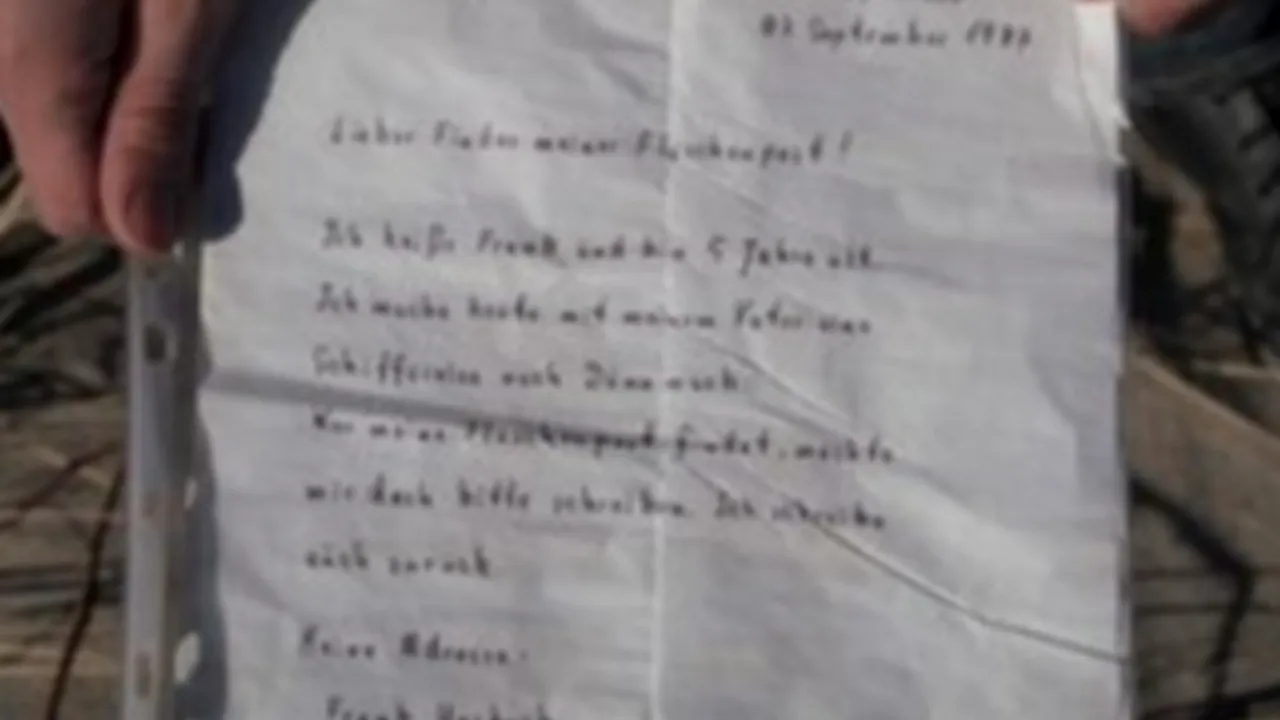 September 1987
Lieber Finder meiner Flaschenpost!
Ich heiße Frank und bin 5 Jahre alt.
Ich mache heute mit meinem Vater eine
Schiffsreise nach Dänemark.
meine Flaschenpost findet, möchte
mir doch bitte schreiben. Ich schreibe
euch zurück
Adresse:
Frank